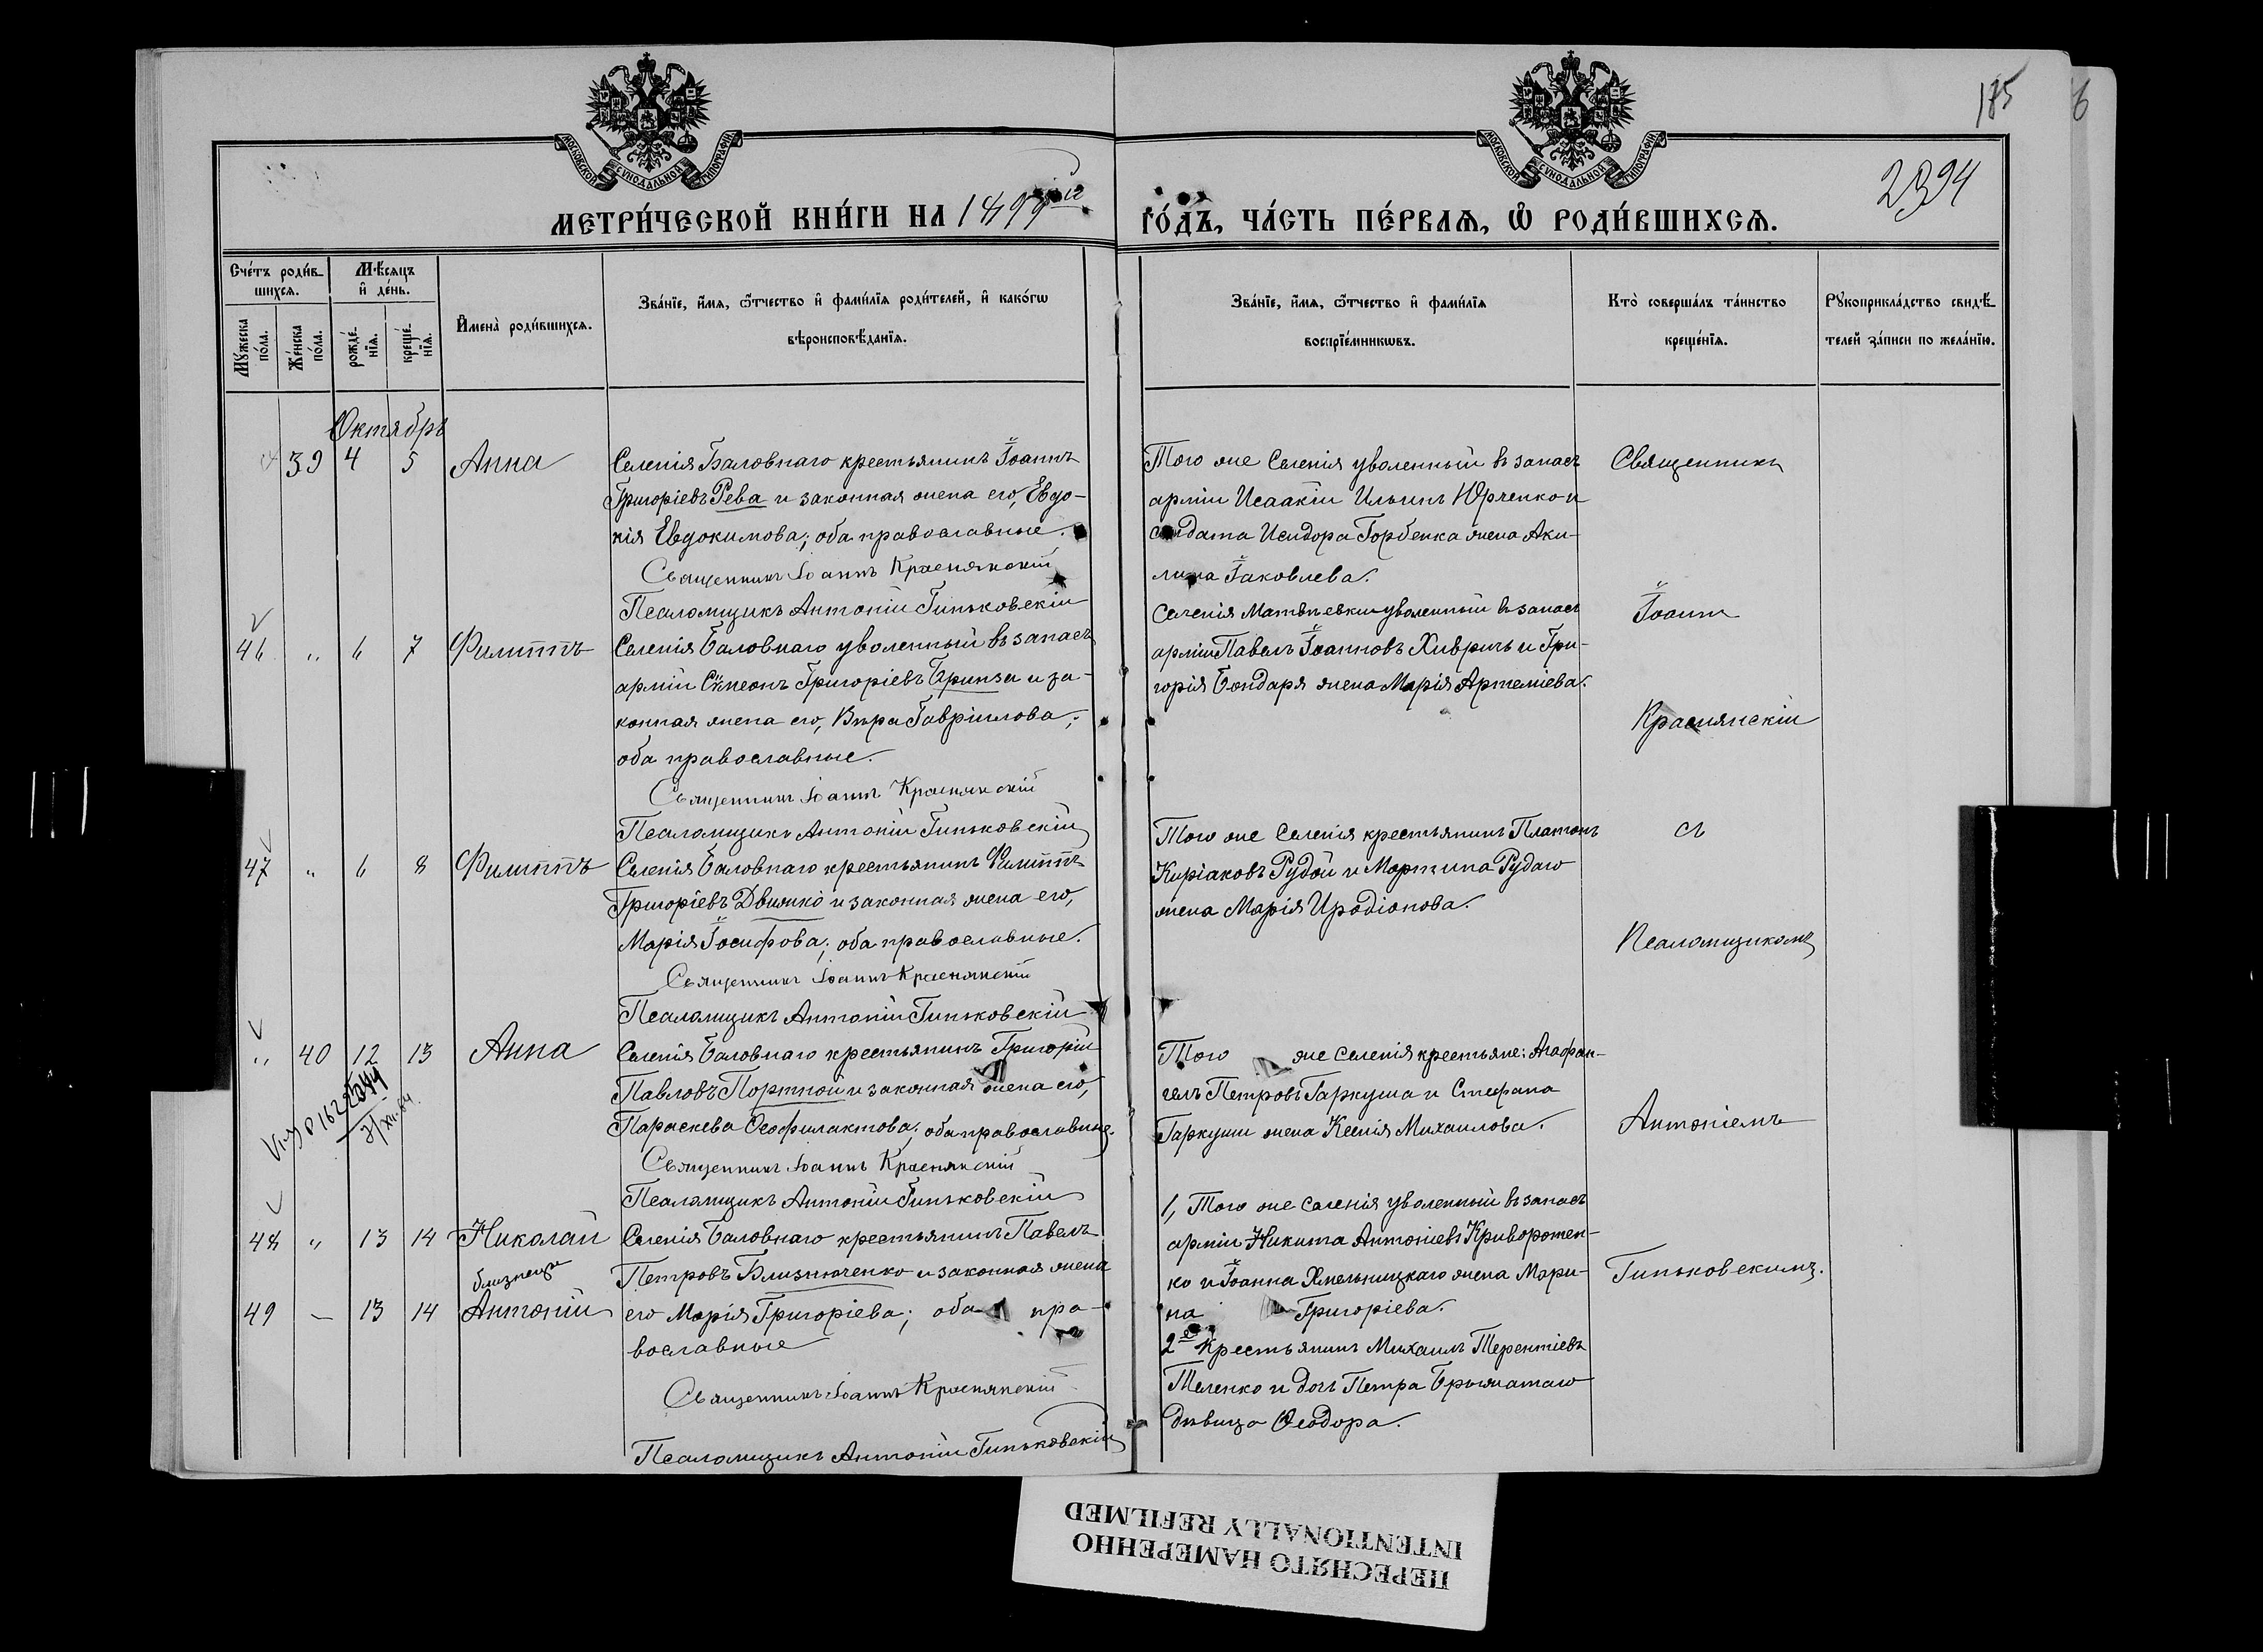 185
6
МОСКОВСКОЙ СУНОДАЛЬНОЙ ТИПОГРАФІИ
МОСКОВСКОЙ СУНОДАЛЬНОЙ ТИПОГРАФІИ
2394
МЕТРИ́ЧЕСКОЙ КНИ́ГИ НА 1899
ГО́ДЪ, ЧА́СТЬ ПЕ́РВАѦ, Ѡ РОДИ́ВШИХСѦ.
Сче́тъ роди́в-
шихсѧ.
Мѣ́сѧцъ
и де́нь.
Мꙋ́жеска по́ла.
Же́нска по́ла.
рожде́-нїѧ.
креще́-нїѧ.
И҆мена̀ роди́вшихсѧ.
Зва́нїе, и҆́мѧ, ѻ҆́тчество и҆ фами́лїѧ роди́телей, и҆ како́гѡ
вѣроисповѣ́данїѧ.
Зва́нїе, и҆́мѧ, ѻ҆́тчество и҆ фами́лїѧ
воспрїе́мникѡвъ.
Кто̀ соверша́лъ та́инство
креще́нїѧ.
Рꙋкоприкла́дство свидѣ́-
телей за́писи по жела́нїю.
Октябрь
39 4 5 Анна
Селенія Баловнаго крестьянинъ Іоаннъ
Григоріевъ Рева и законная жена его, Евдо-
кія Евдокимова; оба православные.
Священникъ Іоаннъ Краснянскій
Псаломщикъ Антоній Гиньковскій
Того же Селенія уволенный въ запасъ
арміи Исаакій Ильинъ Юрченко и
солдата Исидора Горбенка жена Аки-
лина Іаковлева.
46 " 6 7 Филиппъ
Селенія Баловнаго уволенный въ запасъ
арміи Сѵмеонъ Григоріевъ Бринза и за-
конная жена его, Вѣра Гавріилова;
оба православные.
Священникъ Іоаннъ Краснянскій
Псаломщикъ Антоній Гиньковскій
Селенія Матвѣевки уволенный въ запасъ
арміи Павелъ Іоанновъ Хивричъ и Гри-
горія Бондаря жена Марія Артеміева.
47 " 6 8 Филиппъ
Селенія Баловнаго крестьянинъ Филиппъ
Григоріевъ Движко и законная жена его,
Марія Іосифова; оба православные.
Священникъ Іоаннъ Краснянскій
Псаломщикъ Антоній Гиньковскій
Того же Селенія крестьянинъ Платонъ
Киріаковъ Рудой и Мартина Рудаго
жена Марія Иродіонова.
" 40 12 13 Анна
Селенія Баловнаго крестьянинъ Григорій
Павловъ Портной и законная жена его,
Параскева Ѳеофилактова; оба православные.
Священникъ Іоаннъ Краснянскій
Псаломщикъ Антоній Гиньковскій
Того же селенія крестьяне: Агафан-
гелъ Петровъ Гаркуша и Стефана
Гаркуши жена Ксенія Михаилова.
48 " 13 14 Николай
близнецы
49 — 13 14 Антоній
Селенія Баловнаго крестьянинъ Павелъ
Петровъ Близнюченко и законная жена
его Марія Григоріева; оба пра-
вославные
Священникъ Іоаннъ Краснянскій
Псаломщикъ Антоній Гиньковскій
1, Того же селенія уволенный въ запасъ
арміи Никита Антоніевъ Криворотен-
ко и Іоанна Хмельницкаго жена Мари-
на Григоріева.
2е крестьянинъ Михаилъ Терентіевъ
Теленко и дочь Петра
дѣвица Ѳеодора.
Священникъ
Іоаннъ
Краснянскій
съ
Псаломщикомъ
Антоніемъ
Гиньковскимъ.
ПЕРЕСНЯТО НАМЕРЕННО
INTENTIONALLY REFILMED